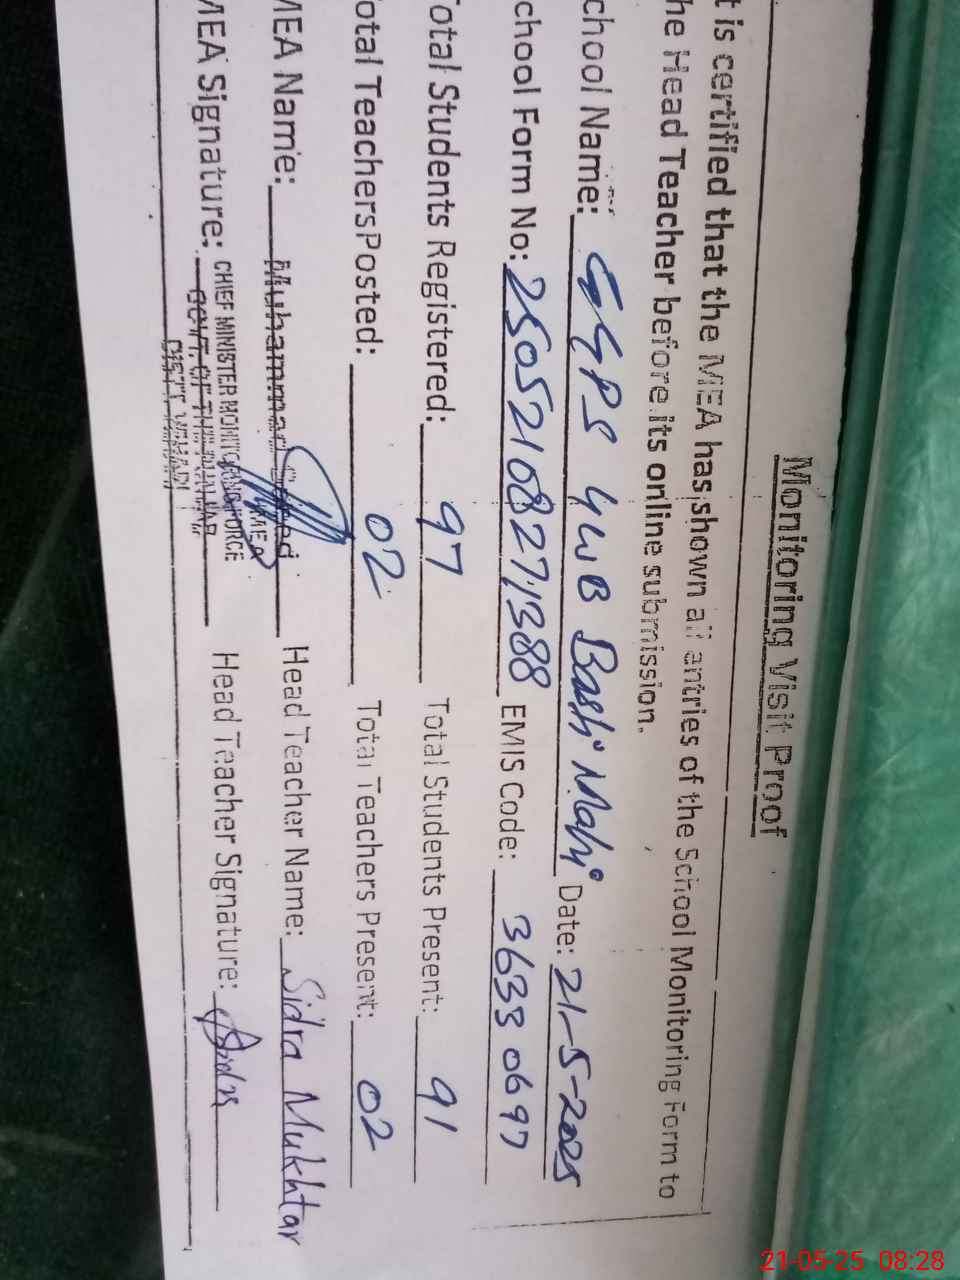 Monitoring Visit Proof
t is certified that the MEA has shown all entries of the School Monitoring Form to
he Head Teacher before its online submission.
chool Name: GGPS 4WB Bashi Mahi Date: 21-5-2025
chool Form No: 25052108271388 EMIS Code: 36330697
otal Students Registered: 97 Total Students Present: 91
otal Teachers Posted: 02 Total Teachers Present: 02
MEA Name: Muhammad Saeed Head Teacher Name: Sidra Mukhtar
MEA
MEA Signature: Head Teacher Signature:
CHIEF MINISTER MONITORING FORCE
GOVT. OF THE PUNJAB
DISTT. VEHARI
21-05-25 08:28